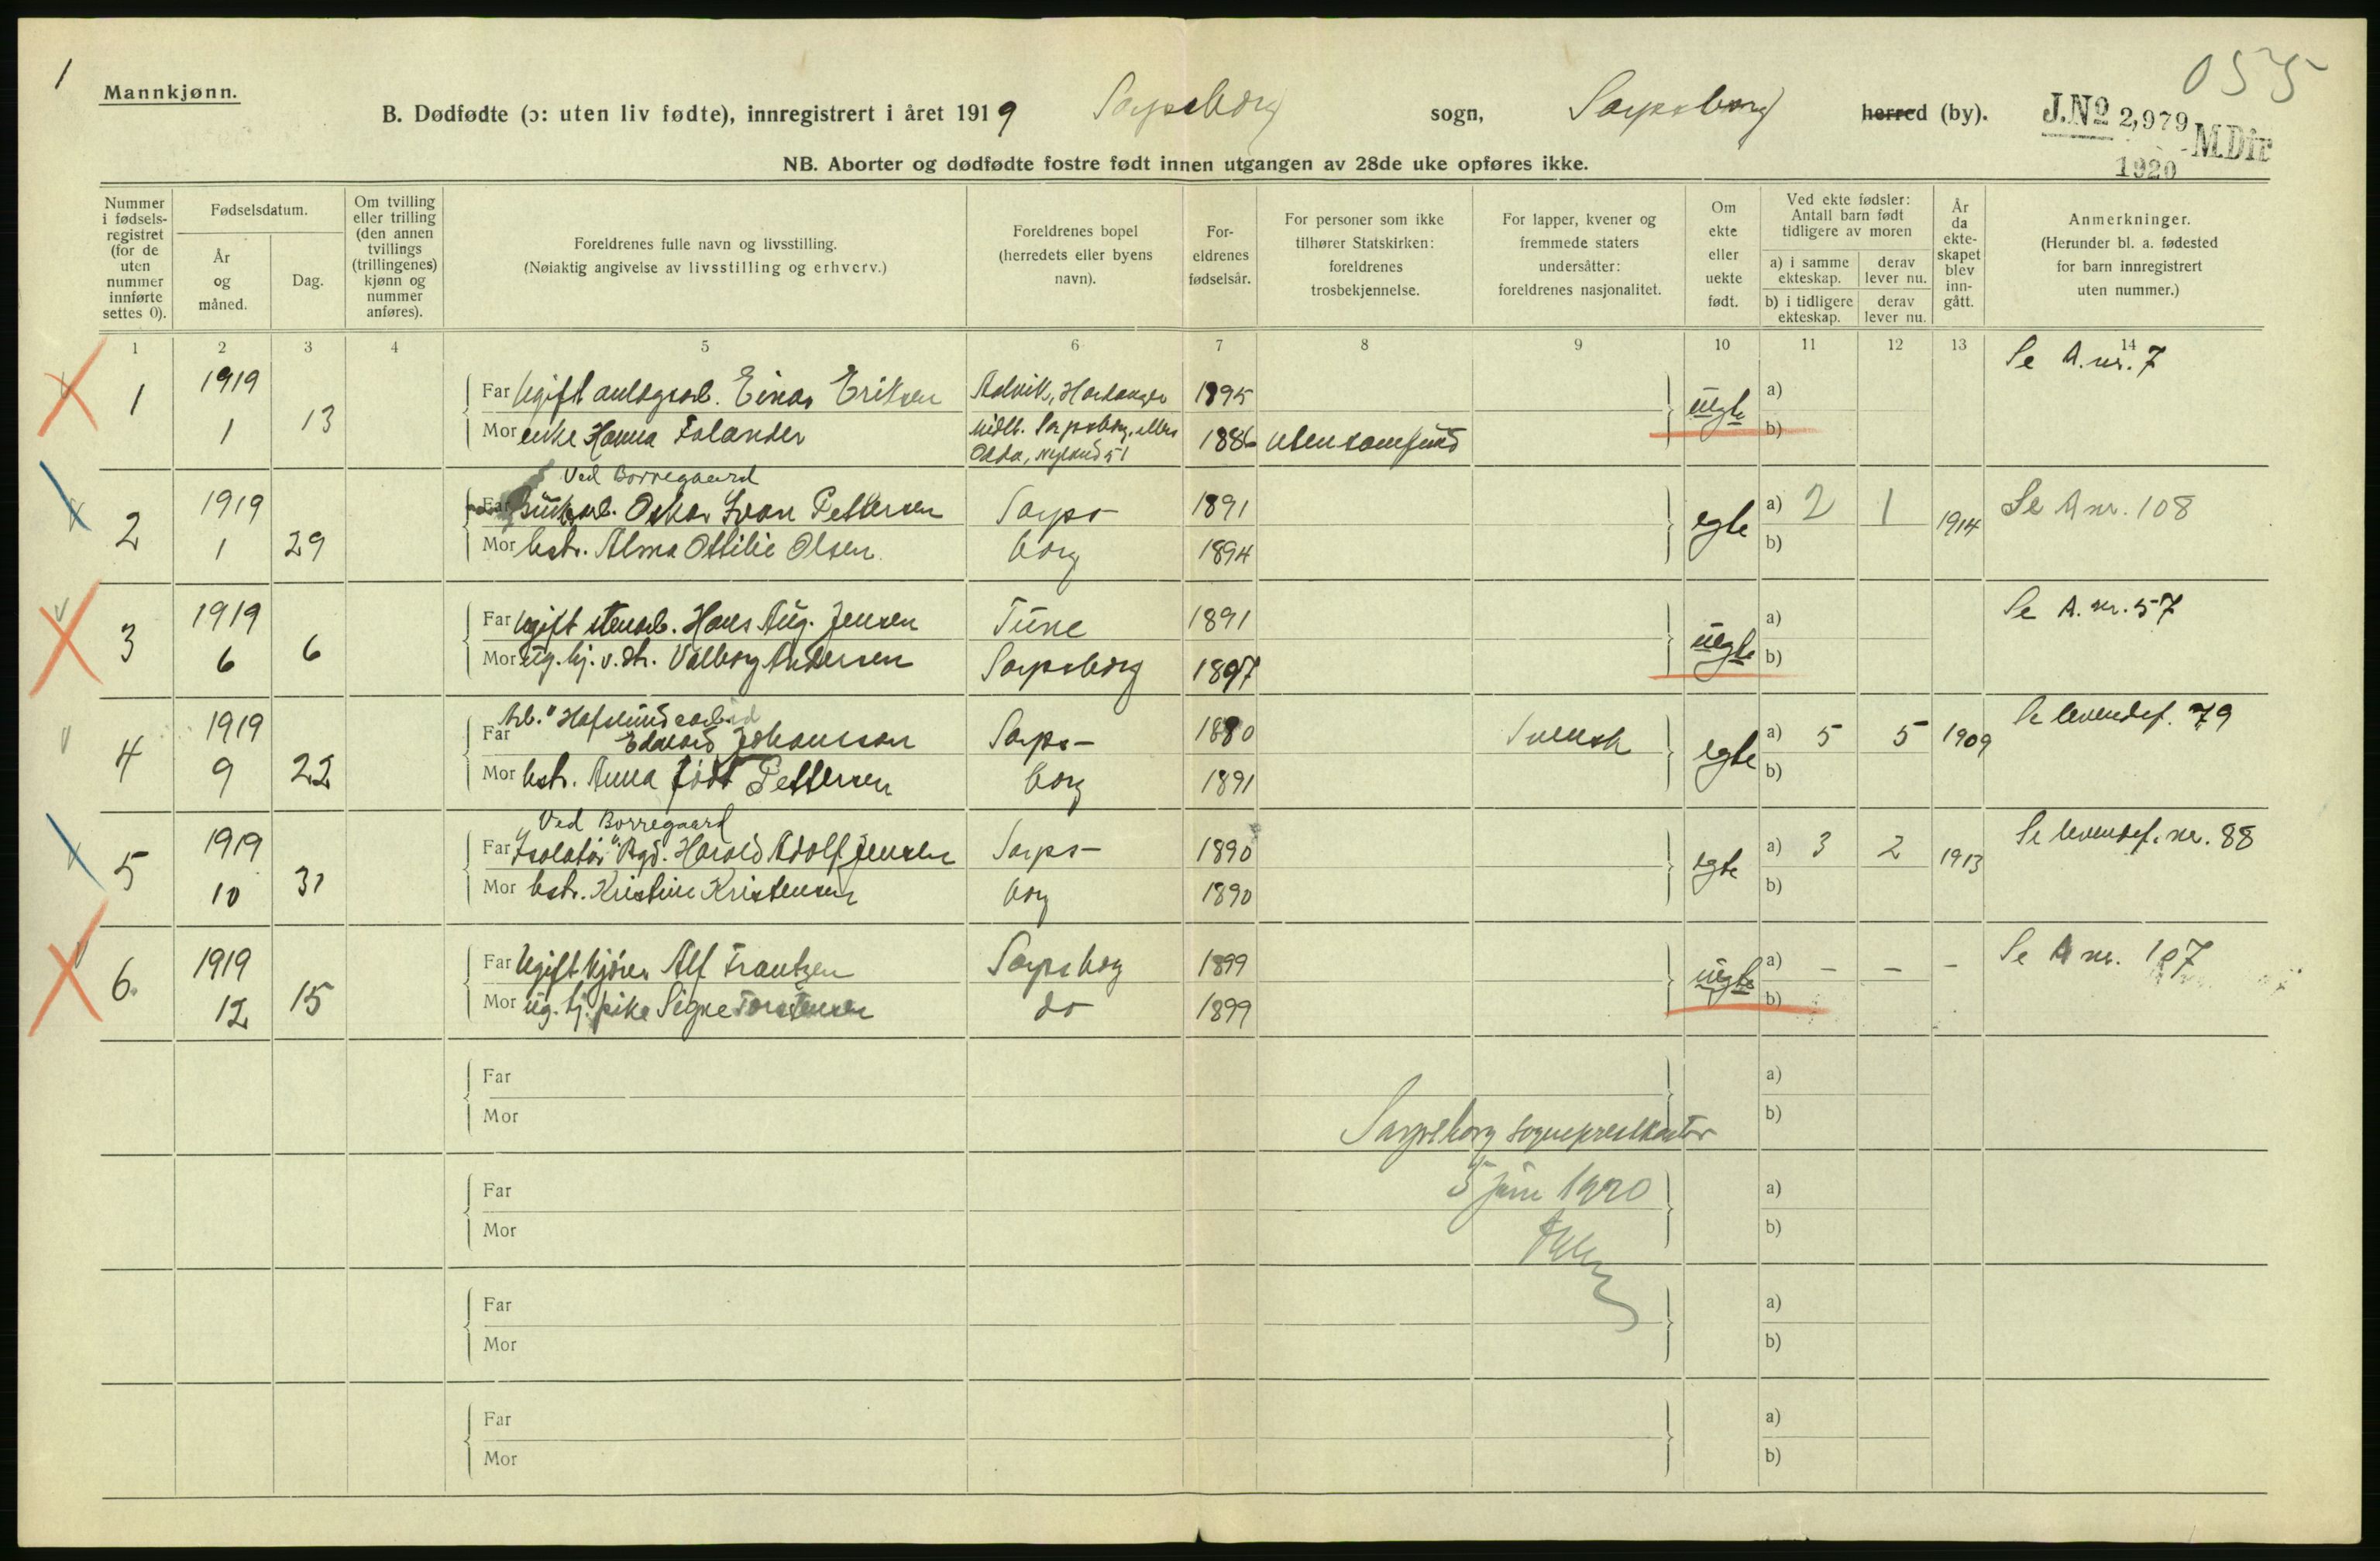 1
Mannkjønn.
055
B. Dødfødte (ɔ: uten liv fødte), innregistrert i året 1919 Sarpsborg sogn, Sarpsborg herred (by).
J.Nº 2,979 M.Dir
1920
NB. Aborter og dødfødte fostre født innen utgangen av 28de uke opføres ikke.
Nummer i fødsels-registret (for de uten nummer innførte settes 0).
Fødselsdatum.
År og måned.
Dag.
Om tvilling eller trilling (den annen tvillings (trillingenes) kjønn og nummer anføres).
Foreldrenes fulle navn og livsstilling.
(Nøiaktig angivelse av livsstilling og erhverv.)
Foreldrenes bopel (herredets eller byens navn).
For-eldrenes fødselsår.
For personer som ikke tilhører Statskirken: foreldrenes trosbekjennelse.
For lapper, kvener og fremmede staters undersåtter: foreldrenes nasjonalitet.
Om ekte eller uekte født.
Ved ekte fødsler: Antall barn født tidligere av moren
a) i samme ekteskap.
derav lever nu.
b) i tidligere ekteskap.
derav lever nu.
År da ekte-skapet blev inn-gått.
Anmerkninger.
(Herunder bl. a. fødested for barn innregistrert uten nummer.)
1 2 3 4 5 6 7 8 9 10 11 12 13 14
1 1919 1 13
Far Ugift anlægsarb. Einar Eriksen Aalvik, Hardanger 1895
Mor enke Hanna Folander midlt. Sarpsborg, ellers Odda, Nyland 51 1886 uten samfund
uegte a) b) Se A. nr. 7
2 1919 1 29
Ved Borregaard
Far Bruksarb. Oskar Ivan Pettersen Sarps- 1891
Mor hstr. Alma Ottilie Olsen borg 1894
egte a) 2 1 b) 1914 Se A nr. 108
3 1919 6 6
Far Ugift stenarb. Hans Aug. Jensen Tune 1891
Mor ug. hj. v. str. Valborg Andersen Sarpsborg 1897
uegte a) b) Se A. nr. 57
4 1919 9 22
Far Arb. "Hafslund Edvard Johansson Sarps- 1880 Svensk
Mor hstr. Anna født Pettersen borg 1891
egte a) 5 5 b) 1909 Se levendef. 79
5 1919 10 31
Ved Borregaard
Far Isolatør "Bgd. Harald Adolf Jensen Sarps- 1890
Mor hstr. Kristine Kristensen borg 1890
egte a) 3 2 b) 1913 Se levendef. nr. 88
6. 1919 12 15
Far Ugift kjører Alf Frantzen Sarpsborg 1899
Mor ug. hj. pike Signe Torstensen do 1899
uegte a) - - - b) Se A nr. 107
Far a)
Mor b)
Sarpsborg sogneprestkontor
Far a)
5 juni 1920
Mor b)
Far a)
Mor b)
Far a)
Mor b)